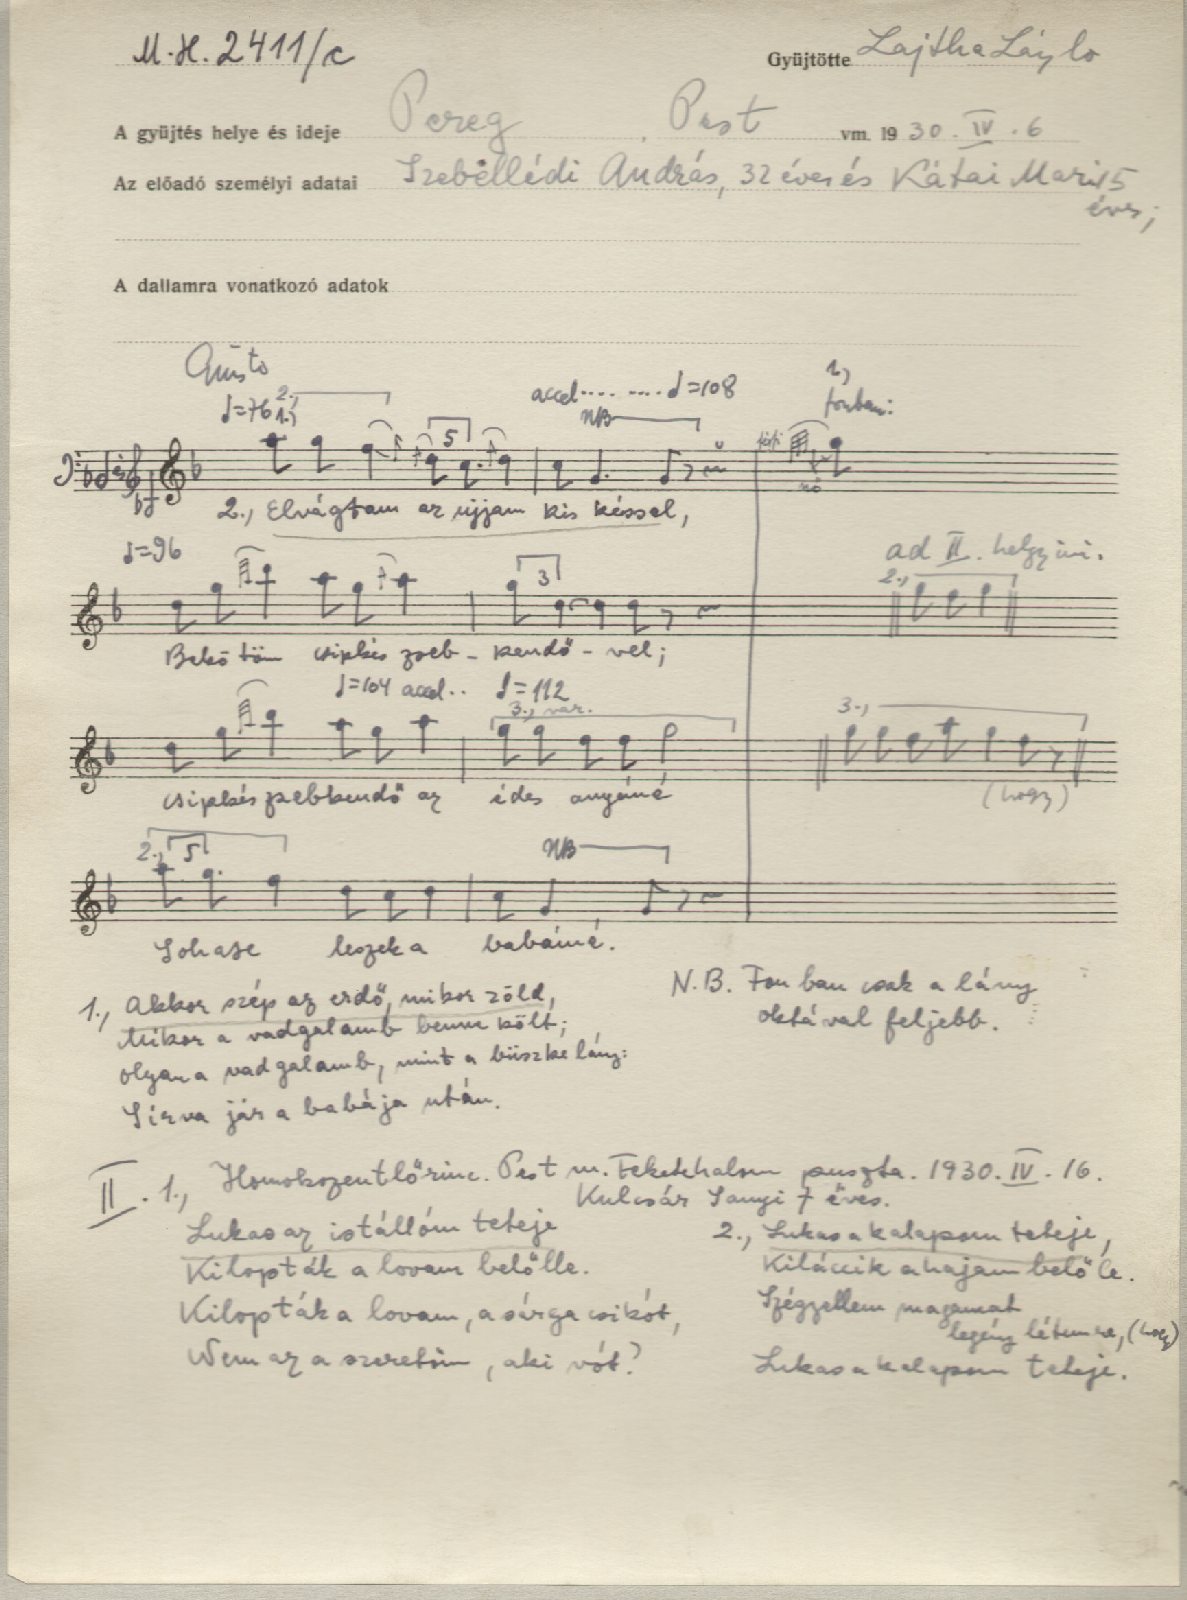 M.H. 2411/c
Gyüjtötte Lajtha László
A gyüjtés helye és ideje Pereg, Pest vm. 1930. IV. 6
Az előadó személyi adatai Szebellédi András, 32 éves és Kátai Mari 15
éves;
A dallamra vonatkozó adatok
Giusto
♩=76 2., 1.,
5
accel........ ♩=108
NB
1.,
fonban:
férfi
nő
2., Elvágtam az ujjam kis késsel,
♩=96
3
ad II. helyzini.
2.,
Bekö töm csipkés zseb - kendő - vel;
♩=104 accel.. ♩=112
3., var.
3.,
csipkés zsebkendő az édes anyámé
(hogy)
2., 5
NB
Sohase leszek a babámé.
1., Akkor szép az erdő, mikor zöld,
Mikor a vadgalamb benne költ;
olyan a vadgalamb, mint a büszke lány:
Sírva jár a babája után.
N.B. Fonban csak a lány
oktával feljebb.
II. 1., Homokszentlőrinc. Pest m. Feketehalom puszta. 1930. IV. 16.
Kulcsár Sanyi 7 éves.
Lukas az istállóm teteje
Kilopták a lovam belőlle.
Kilopták a lovam, a sárga csikót,
Nem az a szeretőm, aki vót?
2., Lukas a kalapom teteje,
Kiláccik a hajam belőle.
Szégyellem magamat
legény létemre, (hogy)
Lukas a kalapom teteje.